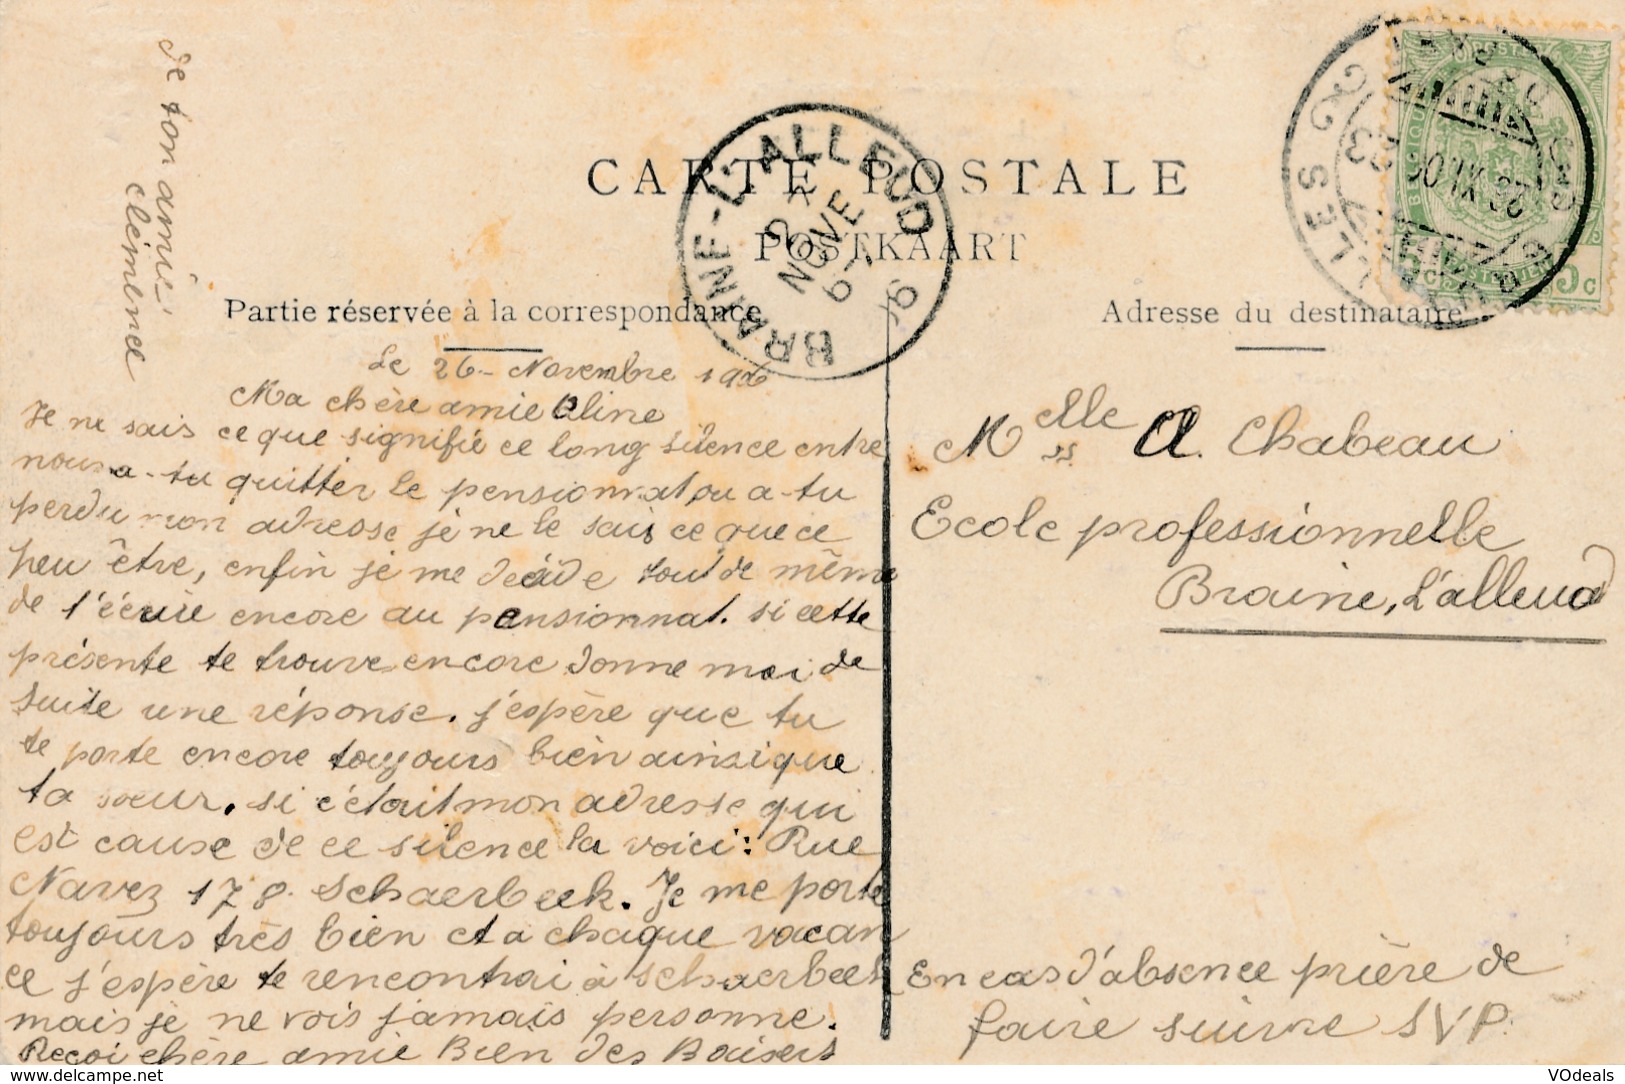 CARTE POSTALE
POSTKAART
Partie réservée à la correspondance
Adresse du destinataire
BRAINE-L'ALLEUD
NOVE
BELGIQUE
Le 26 - Novembre 1906
Ma chère amie Aline
Je ne sais ce que signifie ce long silence entre
nous a-tu quitter le pensionnat, ou a-tu
perdu mon adresse je ne le sais ce que ce
peu être, enfin je me décide tout de même
de t'écrire encore au pensionnat. si cette
présente te trouve encore donne moi de
suite une réponse. j'espère que tu
te porte encore toujours bien ainsi que
ta soeur. si c'était mon adresse qui
est cause de ce silence la voici: Rue
Navez 178. Schaerbeek. Je me porte
toujours très bien et a chaque vacan
ce j'espère te rencontrai à Schaerbeek
mais je ne vois jamais personne.
Reçoi chère amie Bien des Baisers
De ton amie
Clémence
Melle A. Chabeau
Ecole professionnelle
Braine, L'alleud
En cas d'absence prière de
faire suivre SVP.
© delcampe.net
VOdeals